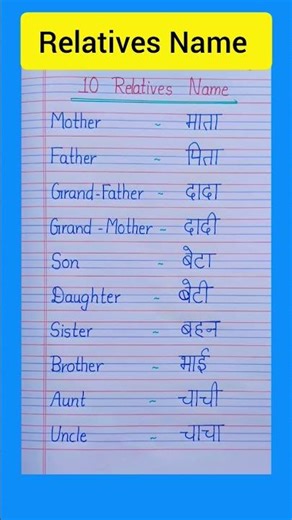 Relatives Name
10 Relatives Name
Mother - माता
Father - पिता
Grand-Father - दादा
Grand-Mother - दादी
Son - बेटा
Daughter - बेटी
Sister - बहन
Brother - भाई
Aunt - चाची
Uncle - चाचा